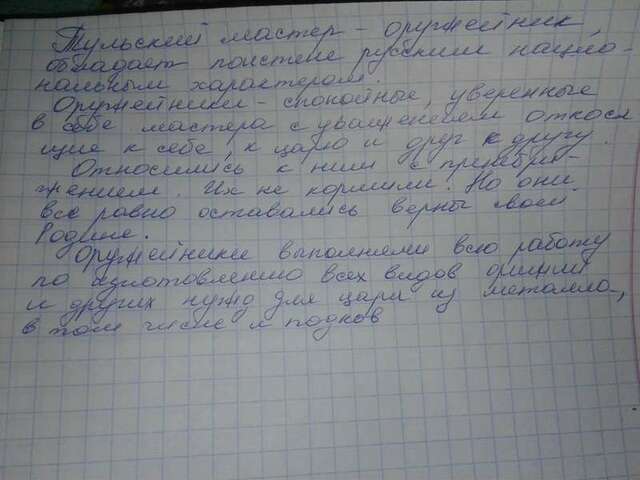 Тульский мастер - оружейник,
обладает поистене русским нацио-
нальным характером.
Оружейники - спокойные, уверенные
в себе мастера с уважением относя
щие к себе, к царю и друг к другу.
Относились к ним с пренебри-
жением. Их не кормили. Но они
все равно оставались верны своей
Родине.
Оружейники выполняли всю работу
по изготовлению всех видов оружий
и других нужд для царя из металла,
в том числе и подков